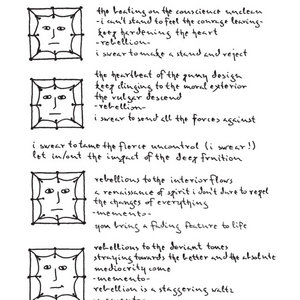 the beating on the conscience unclean
-i can't stand to feel the courage leaving-
keep hardening the heart
-rebellion-
i swear to make a stand and reject
the heartbeat of the grimy design
keep clinging to the moral exterior
the vulgar descend
-rebellism-
i swear to send all the forces against
i swear to tame the fierce uncontrol (i swear!)
let in/out the impact of the deep fruition
rebellions to the interior flows
a renaissance of spirit i don't dare to repel
the changes of everything
-memento-
you bring a fading feature to life
rebellions to the deviant tones
straying towards the better and the absolute
mediocrity come
-memento-
rebellion is a staggering waltz